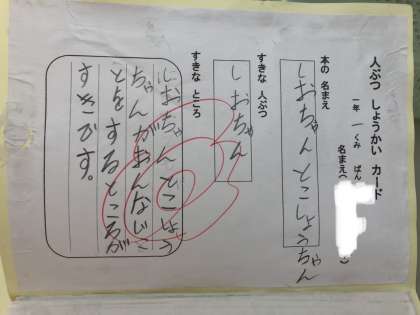 人ぶつ しょうかい カード
一年 一くみ ばん
名まえ(
本の 名まえ
しおちゃんとこしょうちゃん
すきな 人ぶつ
しおちゃん
すきな ところ
しおちゃんとこしょう
ちゃんがおんなじこ
とをするところが
すきです。